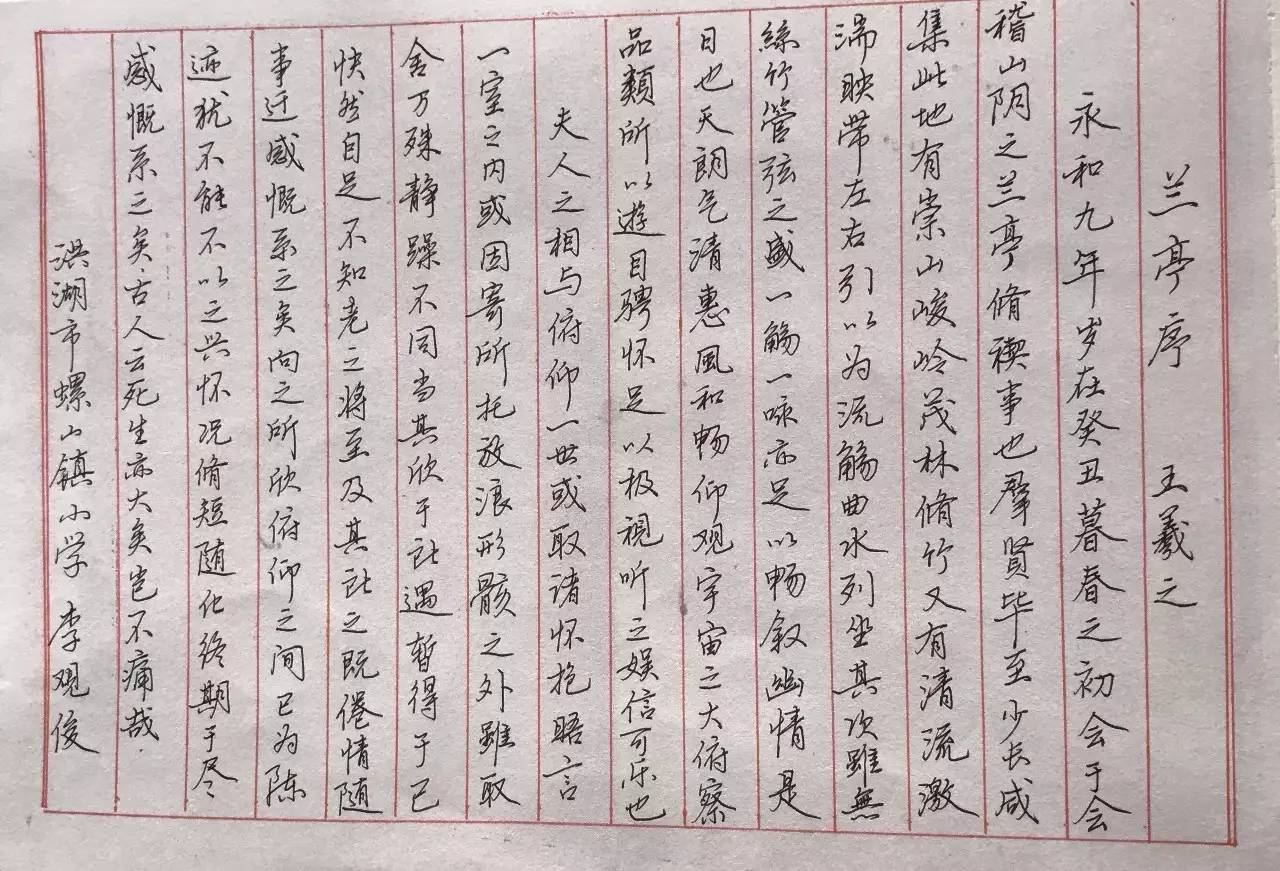 兰亭序 王羲之
永和九年岁在癸丑暮春之初会于会
稽山阴之兰亭脩禊事也群贤毕至少长咸
集此地有崇山峻岭茂林脩竹又有清流激
湍映带左右引以为流觞曲水列坐其次雖無
絲竹管弦之盛一觞一咏亦足以畅叙幽情是
日也天朗气清惠風和畅仰观宇宙之大俯察
品類所以遊目骋怀足以极視听之娱信可乐也
夫人之相与俯仰一世或取诸怀抱晤言
一室之内或因寄所托放浪形骸之外雖取
舍万殊静躁不同当其欣于所遇暫得于己
快然自足不知老之将至及其所之既倦情随
事迁感慨系之矣向之所欣俯仰之间已为陈
迹犹不能不以之兴怀况脩短随化终期于尽
感慨系之矣古人云死生亦大矣岂不痛哉
洪湖市螺山镇小学 李观俊